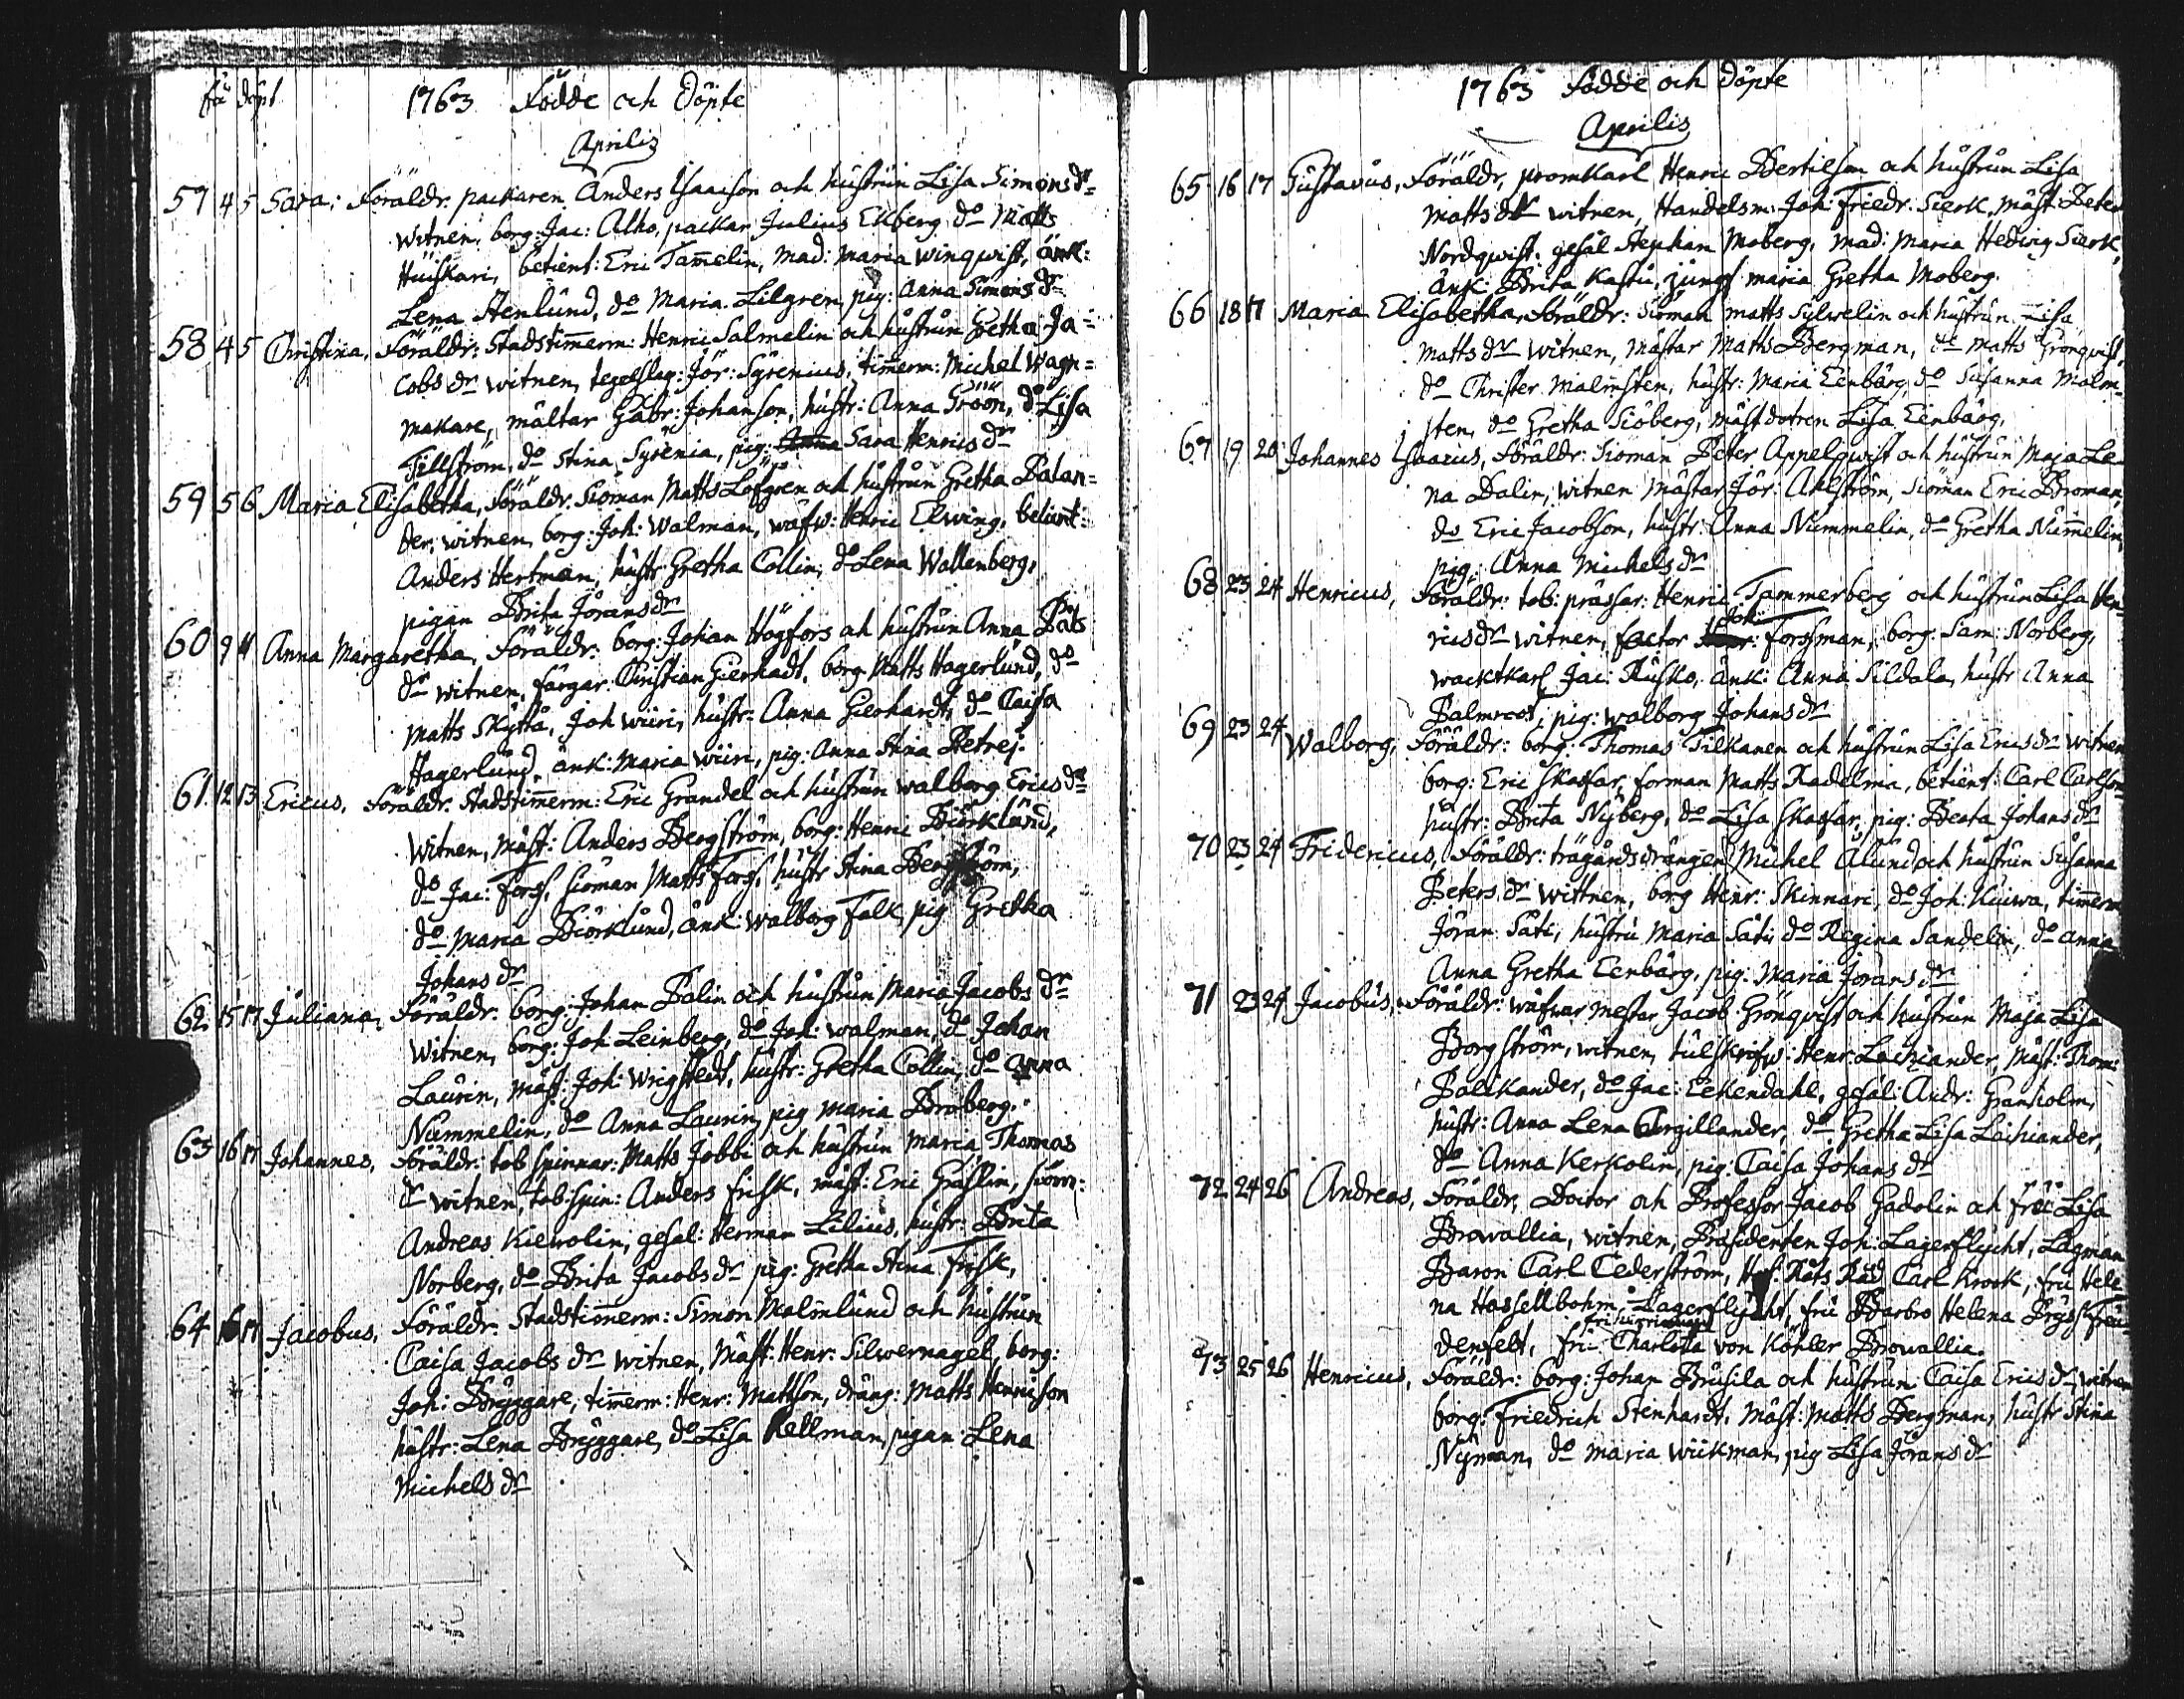 fö döpt 1763 Födde och Döpte
Aprilis
57 4 5 Sara, Föräldr. packaren Anders Isaacson och hustrun Lisa Simons dr
witnen, borg: Jac: Alho, packar Julius Ekberg do Matts
Huiskari, betient: Eric Tam̄elin, mad: Maria Winqwist, änk:
Lena Stenlund, do Maria Lilgren, pig: Anna Simons dr
58 4 5 Christina, Föräldr: Stadstim̄erm: Henric Salmelin och hustrun Gretha Ja=
cobs dr witnen, tegelslag: Jör: Syrenius, tim̄erm: Michel Wagn=
makare, mältar Gabr: Johanson, hustr: Anna Gröön, do Lisa
Tillström, do Stina Syrenia, pig: Sara Henrics dr
59 5 6 Maria Elisabetha, Föräldr. Siöman Matts Löfgren och hustrun Gretha Palan=
der, witnen, borg: Joh: Walman, wäfw: Henric Elwing, betient:
Anders Hertman, hustr Gretha Collin, do Lena Wallenberg,
pigan Brita Jörans dr
60 9 11 Anna Margaretha, Föräldr: borg: Johan Högfors och hustrun Anna Påls
dr witnen, färgar: Christian Gierhadt, borg Matts Hagerlund, do
Matts Skyttä, Joh Wiiri, hustr: Anna Gierhardt, do Caisa
Hagerlund, änk: Maria Wiiri, pig: Anna Stina Petrej.
61 12 13 Ericus, Föräldr. Stadstim̄erm: Eric Grandel och hustrun Walborg Erics dr
witnen, mäst: Anders Bergström, borg: Henric Biörklund,
do Jac: Forss, siöman Matts Forss, hustr Stina Bergström,
do Maria Biörklund, änk: Walborg Falk, pig Gretha
Johans dr
62 15 17 Juliana, Föräldr. borg: Johan Palin och hustrun Maria Jacobs dr
witnen, borg: Joh Leinberg, do Joh: Walman, do Johan
Laurin, mäst: Joh: Wrigstedt, hustr: Gretha Collin, do Anna
Nummelin, do Anna Laurin, pig Maria Broberg.
63 16 17 Johannes, Föräldr: tob spinnar: Matts Jobbi och hustrun Maria Thomas
dr witnen, tob: spin: Anders Frisk, mäst: Eric Gräslin, siöm:
Andreas Kiewolin, gesäl: Herman Lilius, hustr: Brita
Norberg, do Brita Jacobs dr pig: Gretha Stina Frisk,
64 16 17 Jacobus, Föräldr. Stadstim̄erm: Simon Malmlund och hustrun
Caisa Jacobs dr witnen, Mäst: Henr: Silwernagel, borg:
Joh: Bryggare, tim̄erm: Henr: Mattson, dräng: Matts Henricson
hustr: Lena Bryggare, do Lisa Kellman, pigan Lena
Michels dr
1763 Födde och Döpte
Aprilis
65 16 17 Gustavus, Föräldr, promkarl Henric Bertilson och hustrun Lisa
Matts dr witnen, Handelsm: Joh: Friedr. Sierk, mäst: Peter
Nordqwist, gesäl Stephan Moberg, mad: Maria Hedvig Sierk,
änk: Brita Kastu, jungf Maria Gretha Moberg.
66 18 17 Maria Elisabetha, Föräldr: Siöman Matts Sylwelin och hustrun Lisa
Matts dr witnen, mästar Matts Bergman, do Matts Grönqvist,
do Christer Malmsten, hustr: Maria Eenbärg, do Susanna Malm-
sten, do Gretha Siöberg, mäst dotren Lisa Einbärg.
67 19 20 Johannes Isaacus, Föräldr: Siöman Peter Appelqwist och hustrun Maja Le
na Dalin, witnen mästar Jör: Ahlström, siöman Eric Broman,
do Eric Jacobson, hustr: Anna Nummelin, do Gretha Num̄elin,
pig: Anna Michels dr
68 23 24 Henricus, Föräldr: tob: prässar: Henric Tammerberg och hustrun Lisa Hen
rics dr witnen, factor Joh: Forssman, borg: Sam: Norberg,
wacktkarl Jac: Rusko, änk: Anna Sildala, hustr Anna
Palmroos, pig: Walborg Johans dr
69 23 24 Walborg, Föräldr: borg: Thomas Tilkanen och hustrun Lisa Erics dr witnen
borg: Eric Skaffar, forman Matts Radelma, betient: Carl Carlson,
hustr: Brita Nyberg, do Lisa Skaffar, pig: Beata Johans dr
70 23 24 Fridericus, Föräldr: trägårdsdrängen Michel Alund och hustrun Susanna
Peters dr wittnen, borg Henr: Skinnari, do Joh: Kuiwa, tim̄erm
Jöran Säti, hustru Maria Säti, do Regina Sandelin, do Anna
Anna Gretha Eenbärg, pig: Maria Jörans dr
71 23 24 Jacobus, Föräldr: wäfwar mestar Jacob Grönqvist och hustrun Maja Lisa
Borgström, witnen, tulskrifw: Henr: Lachiander, mäst: Thom:
Palikander, do Jac: Eekendahl, gesäl: Andr: Granholm,
hustr: Anna Lena Argillander, do Gretha Lisa Lachiander,
do Anna Kerkolin, pig: Caisa Johans dr
72 24 26 Andreas, Föräldr, Doctor och Professor Jacob Gadolin och fru Lisa
Browallia, witnen, Præsidenten Joh: Lagerflycht, Lagman
Baron Carl Cederström, Hof: Räts Råd Carl Krook, fru Hele
na Hassellbohm: Lagerflycht, fru Barbro Helena Bryss: Freu
denfelt, fru Charlotta von Köhler Browallia.
73 25 26 Henricus, Föräldr: borg: Johan Brusila och hustrun: Caisa Erics dr witnen
borg: Friedrich Stenhardt, mäst: Matts Bergman, hustr Stina
Nyman, do Maria Wiikman, pig Lisa Jörans dr